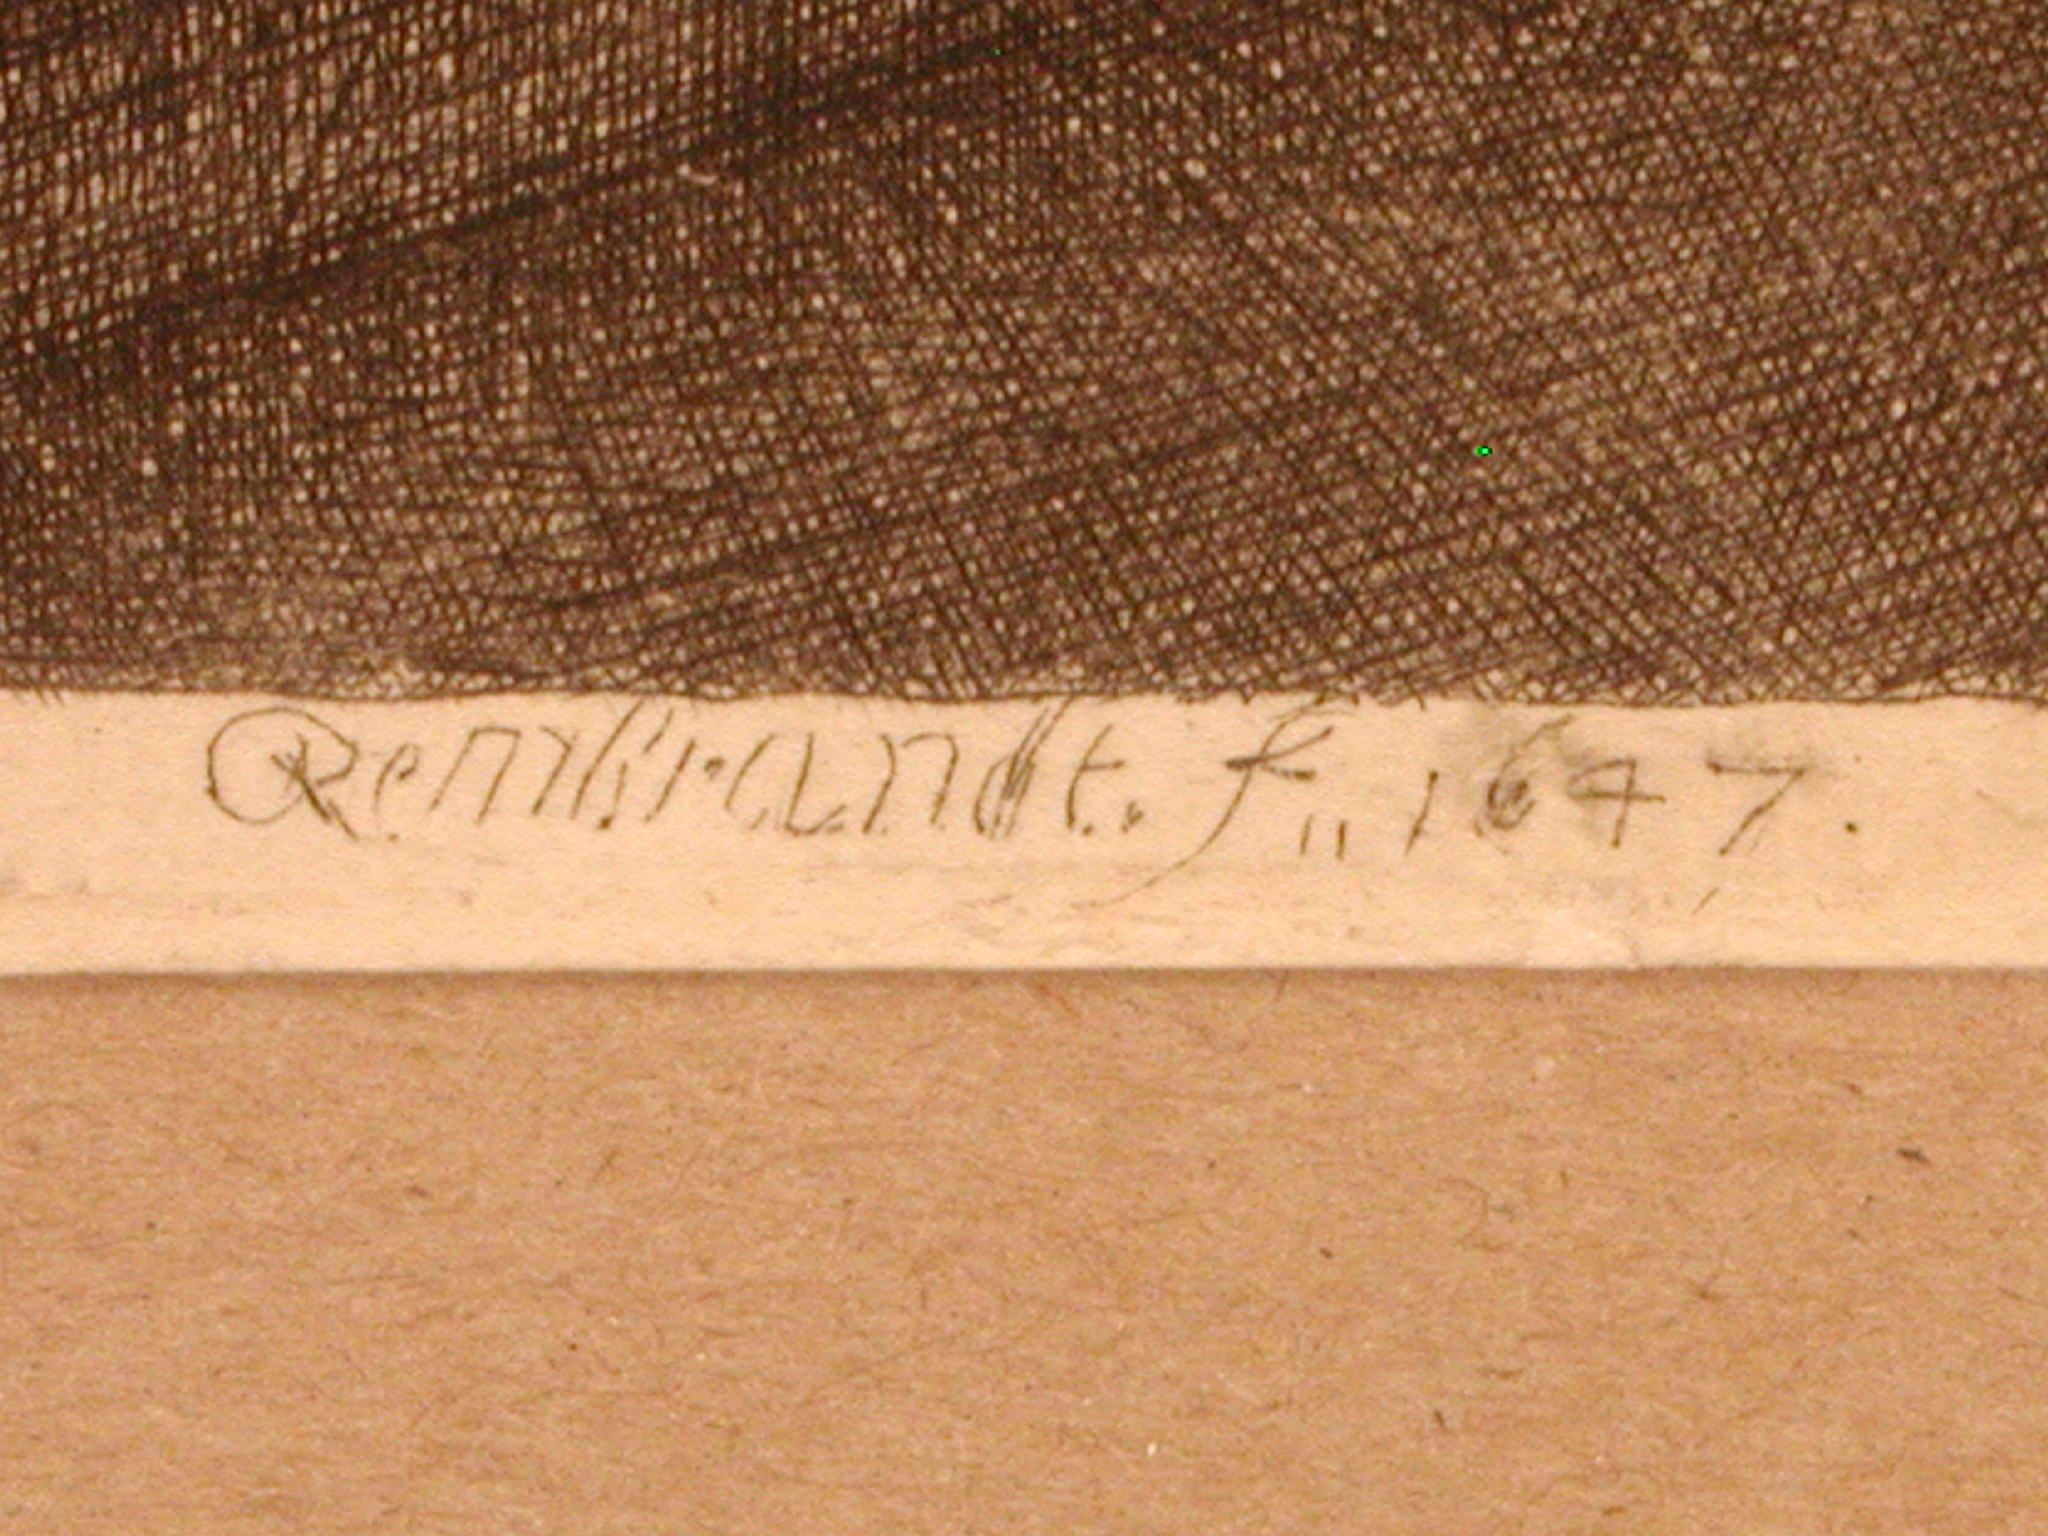 Rembrandt. f,, 1647.